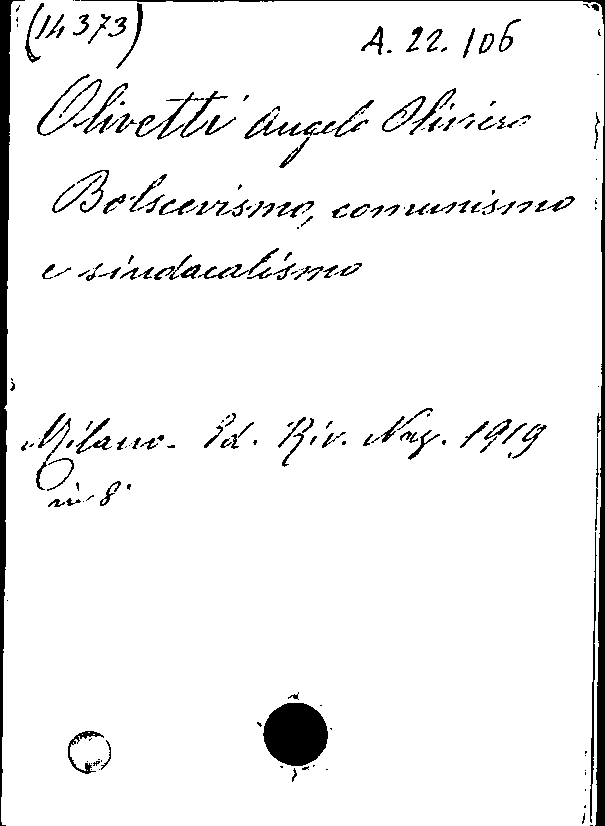 (14373)
A. 22. 106
Olivetti Angelo Oliviero
Bolscevismo, comunismo
e sindacalismo
Milano - Ed. Riv. Naz. 1919
in 8°